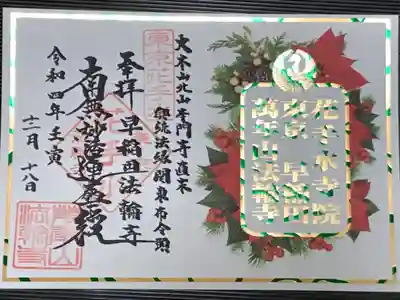 花手水寺院
東京 早稲田
萬年山法輪寺
大本山北山本門寺直末
興統法縁関東布令頭
奉拝 早稲田法輪寺
南無妙法蓮華経
令和四年壬寅
十二月 十八日